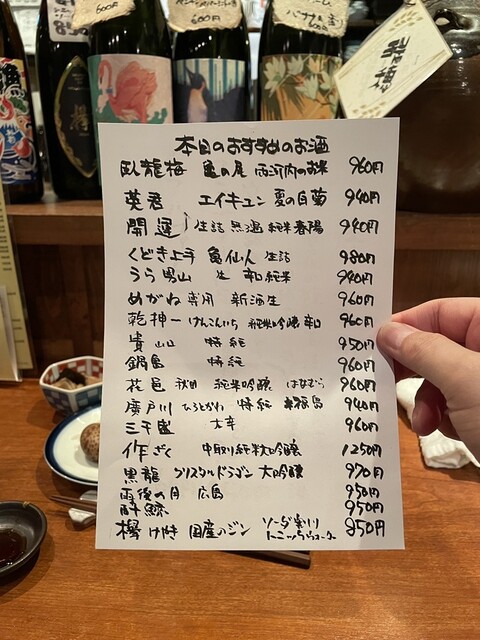 600円
600円
本日のおすすめのお酒
臥龍梅 亀の尾 両河内のお米 960円
英君 エイキュン 夏の白菊 940円
開運 生詰 無濾 純米 春陽 940円
くどき上手 亀仙人 生詰 980円
うら男山 生 辛口純米 940円
めがね専用 新酒生 960円
乾坤一 けんこんいち 純米吟醸 辛口 960円
貴 山口 特純 950円
鍋島 特純 960円
花邑 秋田 純米吟醸 はなむら 960円
廣戸川 ひろとがわ 特純 福島 940円
三千盛 大辛 960円
作 ざく 中取り純米大吟醸 1250円
黒龍 クリスタルドラゴン 大吟醸 970円
雨後の月 広島 950円
酔鯨 950円
欅 けやき 国産のジン ソーダ割り 850円
トニックウォーター